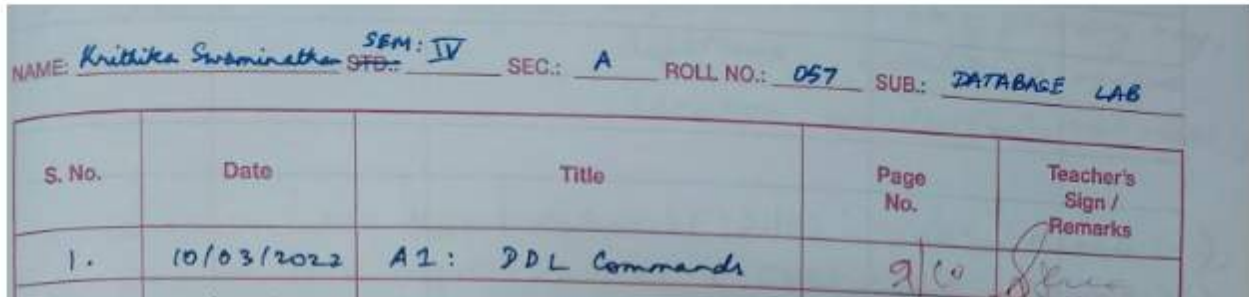 NAME: Krithika Swaminathan STD.: SEM: IV SEC.: A ROLL NO.: 057 SUB.: DATABASE LAB
S. No. Date Title Page No. Teacher's Sign / Remarks
1. 10/03/2022 A1: DDL Commands 9/10